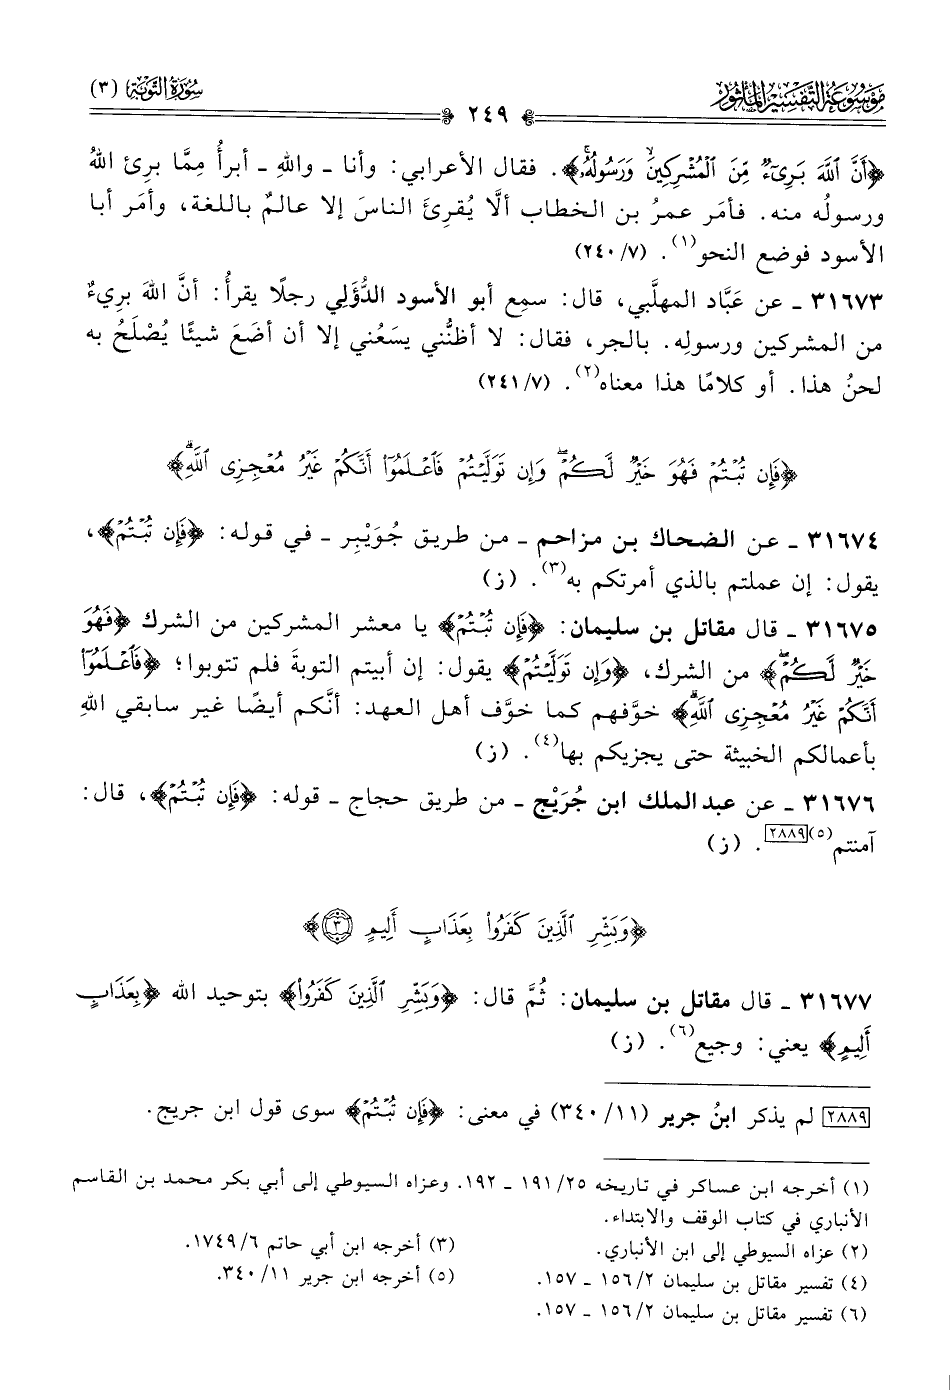 مَوْسُوعَةُ التَّفْسِيرِ المَأْثُورِ
سُورَةُ التَّوْبَةِ (٣)
٢٤٩
﴿أَنَّ ٱللَّهَ بَرِىٓءٌ مِّنَ ٱلْمُشْرِكِينَ وَرَسُولُهُۥ﴾. فقال الأعرابي: وأنا ـ واللهِ ـ أبرأُ مِمَّا برِئ اللهُ
ورسولُه منه. فأمَر عمرُ بن الخطاب ألَّا يُقرِئَ الناسَ إلا عالمٌ باللغة، وأمَر أبا
الأسود فوضع النحو(١). (٧/ ٢٤٠)
٣١٦٧٣ ـ عن عَبَّاد المهلَّبي، قال: سمِع أبو الأسود الدُّؤَلي رجلًا يقرأُ: أنَّ اللهَ بريءٌ
من المشركين ورسولِه. بالجر، فقال: لا أظنُّني يسَعُني إلا أن أضَعَ شيئًا يُصْلَحُ به
لحنُ هذا. أو كلامًا هذا معناه(٢). (٧/ ٢٤١)
﴿فَإِن تُبْتُمْ فَهُوَ خَيْرٌ لَّكُمْ ۖ وَإِن تَوَلَّيْتُمْ فَٱعْلَمُوٓا۟ أَنَّكُمْ غَيْرُ مُعْجِزِى ٱللَّهِ ۗ﴾
٣١٦٧٤ ـ عن الضحاك بن مزاحم ـ من طريق جُوَيْبِر ـ في قوله: ﴿فَإِن تُبْتُمْ﴾،
يقول: إن عملتم بالذي أمرتكم به(٣). (ز)
٣١٦٧٥ ـ قال مقاتل بن سليمان: ﴿فَإِن تُبْتُمْ﴾ يا معشر المشركين من الشرك ﴿فَهُوَ
خَيْرٌ لَّكُمْ ۖ﴾ من الشرك، ﴿وَإِن تَوَلَّيْتُمْ﴾ يقول: إن أبيتم التوبةَ فلم تتوبوا؛ ﴿فَٱعْلَمُوٓا۟
أَنَّكُمْ غَيْرُ مُعْجِزِى ٱللَّهِ ۗ﴾ خوَّفهم كما خوَّف أهل العهد: أنَّكم أيضًا غير سابقي اللهِ
بأعمالكم الخبيثة حتى يجزيكم بها(٤). (ز)
٣١٦٧٦ ـ عن عبد الملك ابن جُرَيْج ـ من طريق حجاج ـ قوله: ﴿فَإِن تُبْتُمْ﴾، قال:
آمنتم(٥)[٢٨٨٩]. (ز)
﴿وَبَشِّرِ ٱلَّذِينَ كَفَرُوا۟ بِعَذَابٍ أَلِيمٍ ٣﴾
٣١٦٧٧ ـ قال مقاتل بن سليمان: ثُمَّ قال: ﴿وَبَشِّرِ ٱلَّذِينَ كَفَرُوا۟﴾ بتوحيد الله ﴿بِعَذَابٍ
أَلِيمٍ﴾ يعني: وجيع(٦). (ز)
[٢٨٨٩] لم يذكر ابنُ جرير (١١/ ٣٤٠) في معنى: ﴿فَإِن تُبْتُمْ﴾ سوى قول ابن جريج.
(١) أخرجه ابن عساكر في تاريخه ٢٥/ ١٩١ ـ ١٩٢. وعزاه السيوطي إلى أبي بكر محمد بن القاسم
الأنباري في كتاب الوقف والابتداء.
(٢) عزاه السيوطي إلى ابن الأنباري.
(٣) أخرجه ابن أبي حاتم ٦/ ١٧٤٩.
(٤) تفسير مقاتل بن سليمان ٢/ ١٥٦ ـ ١٥٧.
(٥) أخرجه ابن جرير ١١/ ٣٤٠.
(٦) تفسير مقاتل بن سليمان ٢/ ١٥٦ ـ ١٥٧.